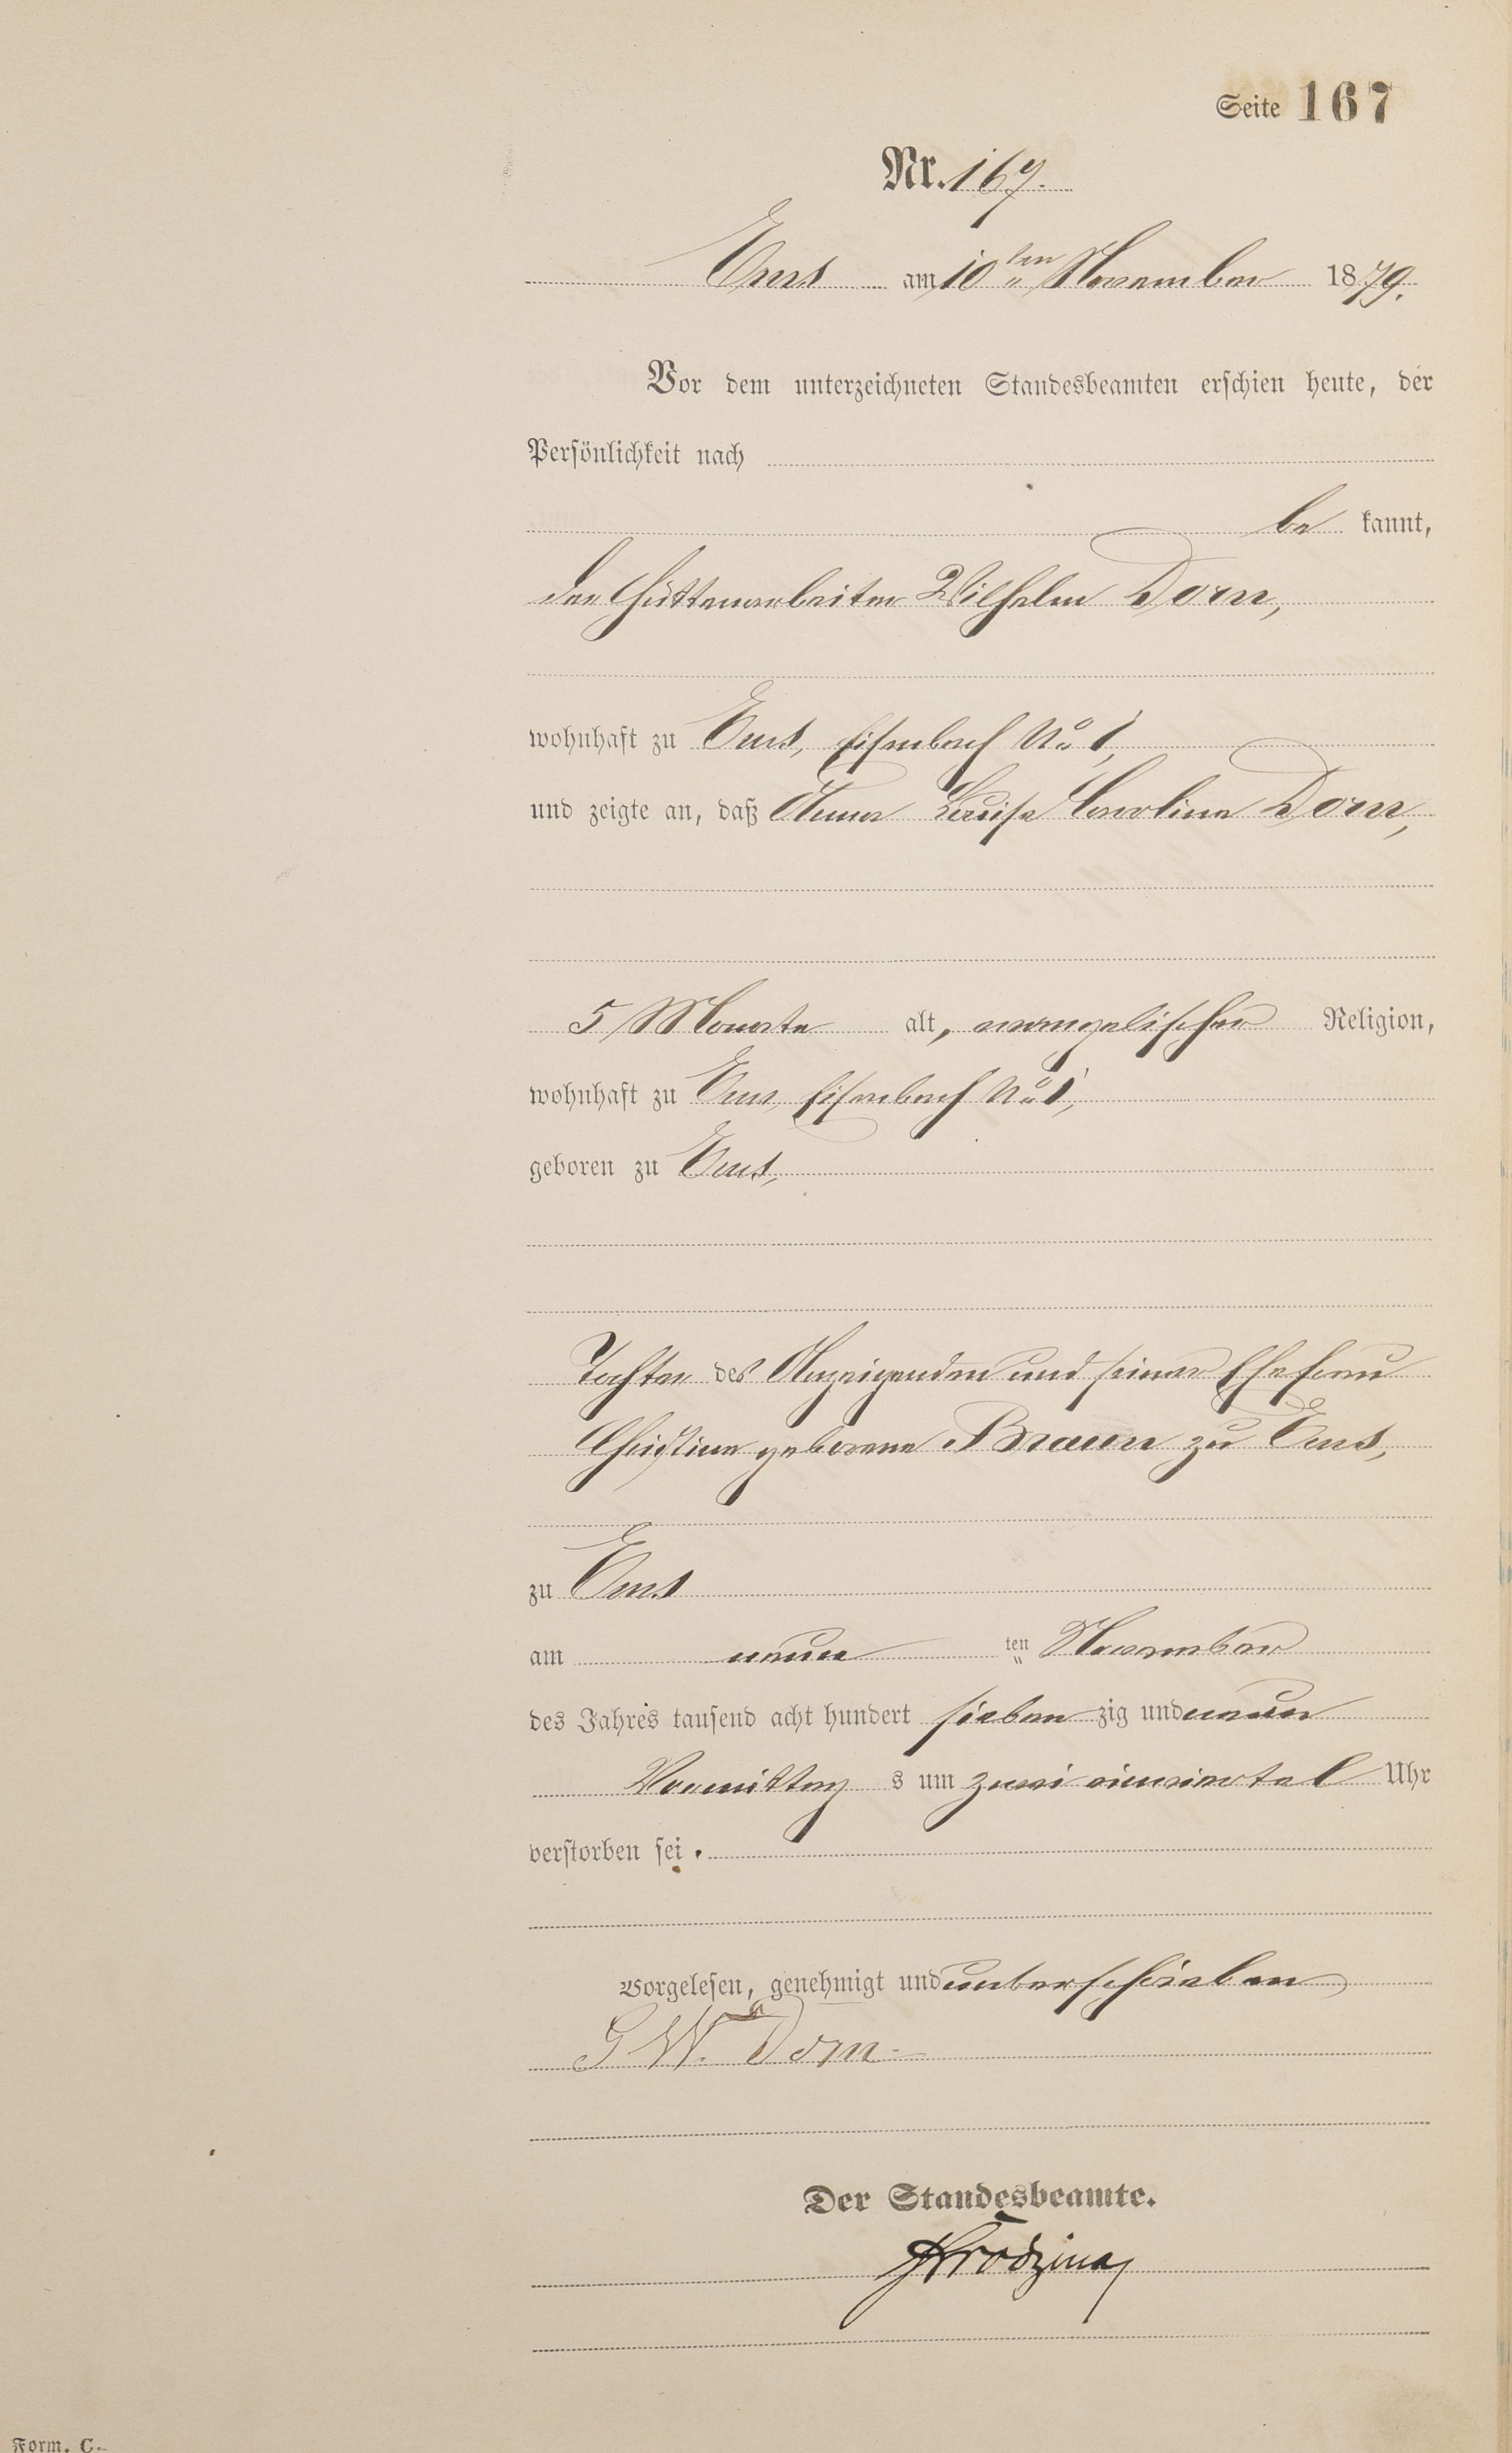 Seite 167
Nr. 167.
Ems am 10ten November 1879.
Vor dem unterzeichneten Standesbeamten erschien heute, der
Persönlichkeit nach
be kannt,
der Hüttenarbeiter Wilhelm Dorn,
wohnhaft zu Ems, Eisenbach No 1,
und zeigte an, daß Anna Luise Caroline Dorn,
5 Monate alt, evangelischer Religion,
wohnhaft zu Ems, Eisenbach No 1,
geboren zu Ems,
Tochter des Anzeigenden und seiner Ehefrau
Christine geborene Braun zu Ems,
zu Ems
am neun ten November
des Jahres tausend acht hundert sieben zig und neun
Vormittag s um zwei einviertel Uhr
verstorben sei.
Vorgelesen, genehmigt und unterschrieben
G W. Dorn
Der Standesbeamte.
Form. C.